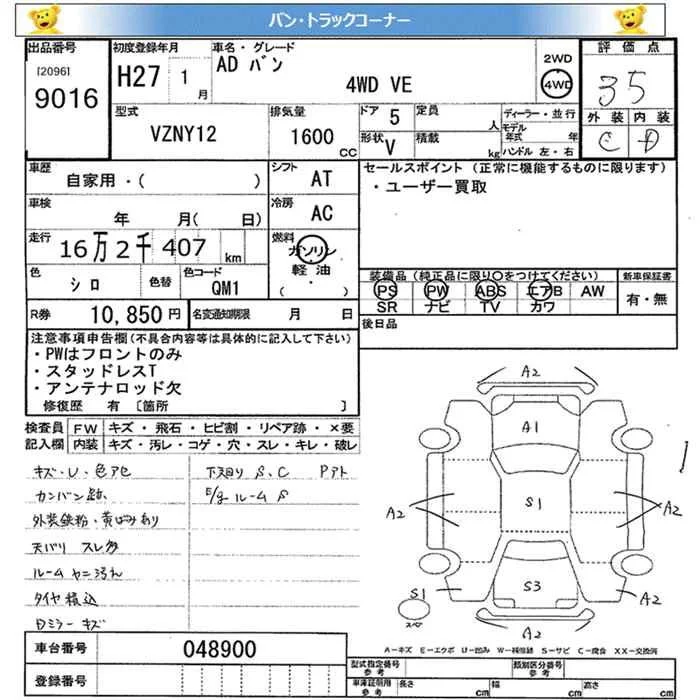 バン・トラックコーナー
出品番号
[2096]
9016
初度登録年月
H27 1月
車名・グレード
AD バン
4WD VE
2WD
4WD
評価点
35
外装 内装
C D
型式
VZNY12
排気量
1600
CC
ドア 5
定員
人
形状 V
積載
kg
ディーラー・並行
モデル年式 年
ハンドル 左・右
車歴
自家用・( )
シフト
AT
セールスポイント (正常に機能するものに限ります)
・ユーザー買取
車検
年 月( 日)
冷房
AC
走行
16万2千407 km
燃料
ガソリン
軽油
( )
色
シロ
色替
色コード
QM1
装備品(純正品に限り〇をつけてください)
PS PW ABS エアB AW
SR ナビ TV カワ
新車保証書
有・無
R券
10,850円
名変通知期限 月 日
後日品
注意事項申告欄(不具合内容等は具体的に記入して下さい)
・PWはフロントのみ
・スタッドレスT
・アンテナロッド欠
修復歴 有 [箇所 ]
検査員記入欄
FW キズ・飛石・ヒビ割・リペア跡・×要
内装 キズ・汚レ・コゲ・穴・スレ・キレ・破レ
キズ・U・色アセ
カンバン跡、
外装鉄粉・黄ばみあり
天バリ スレ多
ルーム ヤニ汚れ
タイヤ積込
Dミラー キズ
下廻り S、C Pアト
E/gルーム S
A2
A1
S1
A2
A2
S3
S1
スペア
A2
A2
A－キズ E－エクボ U－凹み W－補修跡 S－サビ C－腐食 XX－交換済
車台番号
048900
登録番号
型式指定番号
参考
類別区分番号
参考
車庫証明用
参考
長さ cm
幅 cm
高さ cm